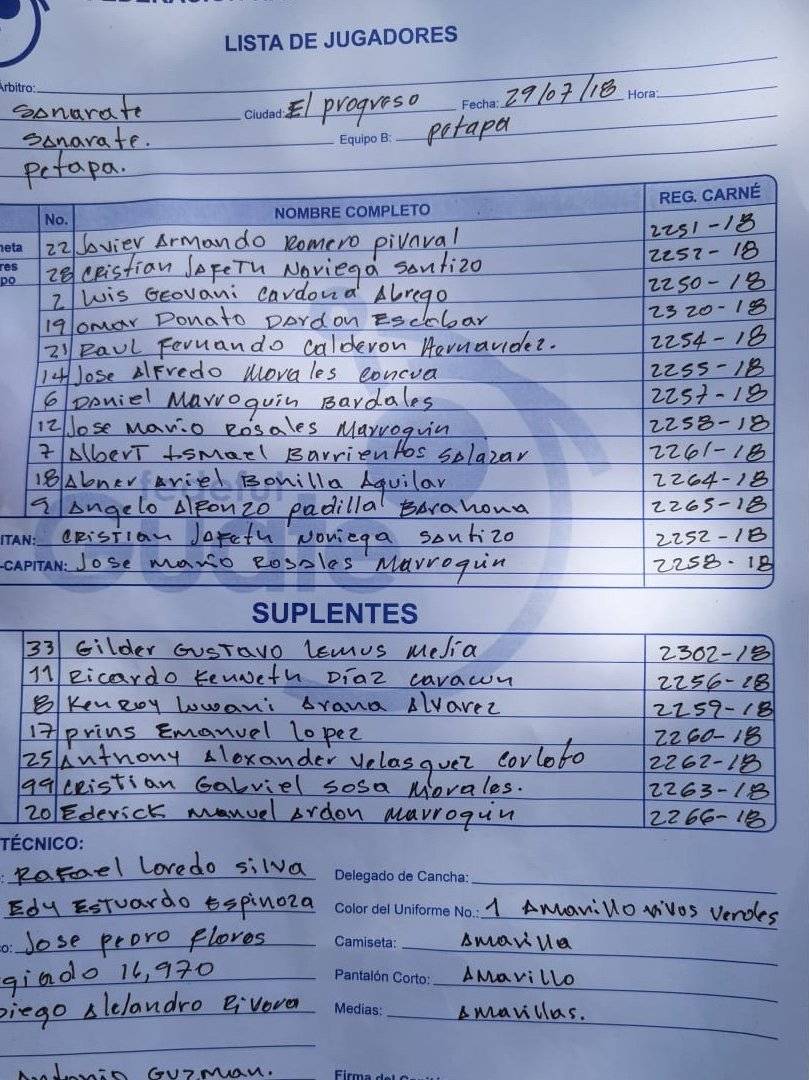 LISTA DE JUGADORES
Árbitro:
Sanarate Ciudad: El progreso Fecha: 29/07/18 Hora:
Sanarate. Equipo B: petapa
petapa.
No. NOMBRE COMPLETO REG. CARNÉ
22 Javier Armando Romero Pivaral 2251-18
28 Cristian Jafeth Noriega Santizo 2252-18
2 Luis Geovani Cardona Abrego 2250-18
19 Omar Donato Dardon Escobar 2320-18
21 Raul Fernando Calderon Hernandez. 2254-18
14 Jose Alfredo Morales Concua 2255-18
6 Daniel Marroquin Bardales 2257-18
12 Jose Mario Rosales Marroquin 2258-18
7 Albert Ismael Barrientos Salazar 2261-18
18 Abner Ariel Bonilla Aguilar 2264-18
9 Angelo Alfonzo padilla Barahona 2265-18
ITAN: Cristian Jafeth Noriega Santizo 2252-18
-CAPITAN: Jose Mario Rosales Marroquin 2258-18
fedefut
Guate
SUPLENTES
33 Gilder Gustavo Lemus Mejia 2302-18
11 Ricardo Kenneth Díaz 2256-18
8 Kenroy Arana Alvarez 2259-18
17 prins Emanuel lopez 2260-18
25 Anthony Alexander Velasquez Corleto 2262-18
99 Cristian Gabriel Sosa Morales. 2263-18
20 Ederick Manuel Ardon Marroquin 2266-18
TÉCNICO:
Rafael Loredo Silva Delegado de Cancha:
Edy Estuardo Espinoza Color del Uniforme No.: 1 Amarillo vivos verdes
o: Jose pedro flores Camiseta: Amarilla
giado 16,970 Pantalón Corto: Amarillo
Diego Alejandro Rivera Medias: Amarillas.
Antonio Guzman. Firma del